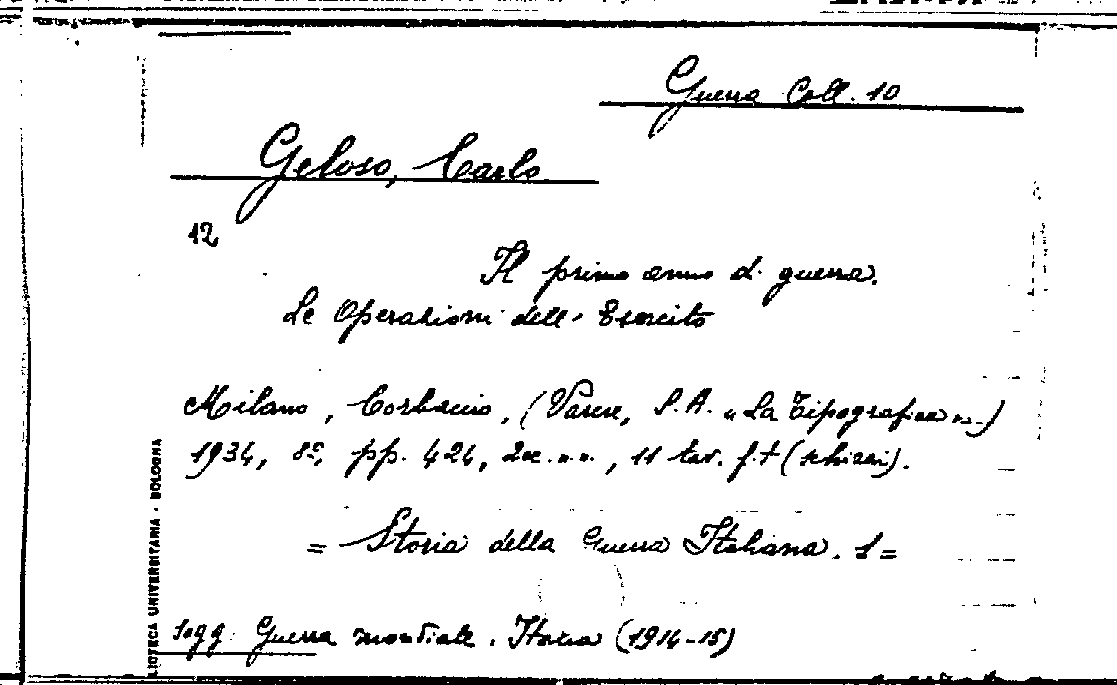 Guerra Coll. 10
Geloso, Carlo
12
Il primo anno di guerra.
Le Operazioni dell'Esercito
Milano, Corbaccio, (Varese, S.A. "La Tipografica")
1934, 8°, pp. 424, 2 cc. n.n., 11 tav. f.t (schizzi).
= Storia della Guerra Italiana. 1 =
Sogg: Guerra mondiale. Italia (1914-15)
LIOTECA UNIVERSITARIA - BOLOGNA